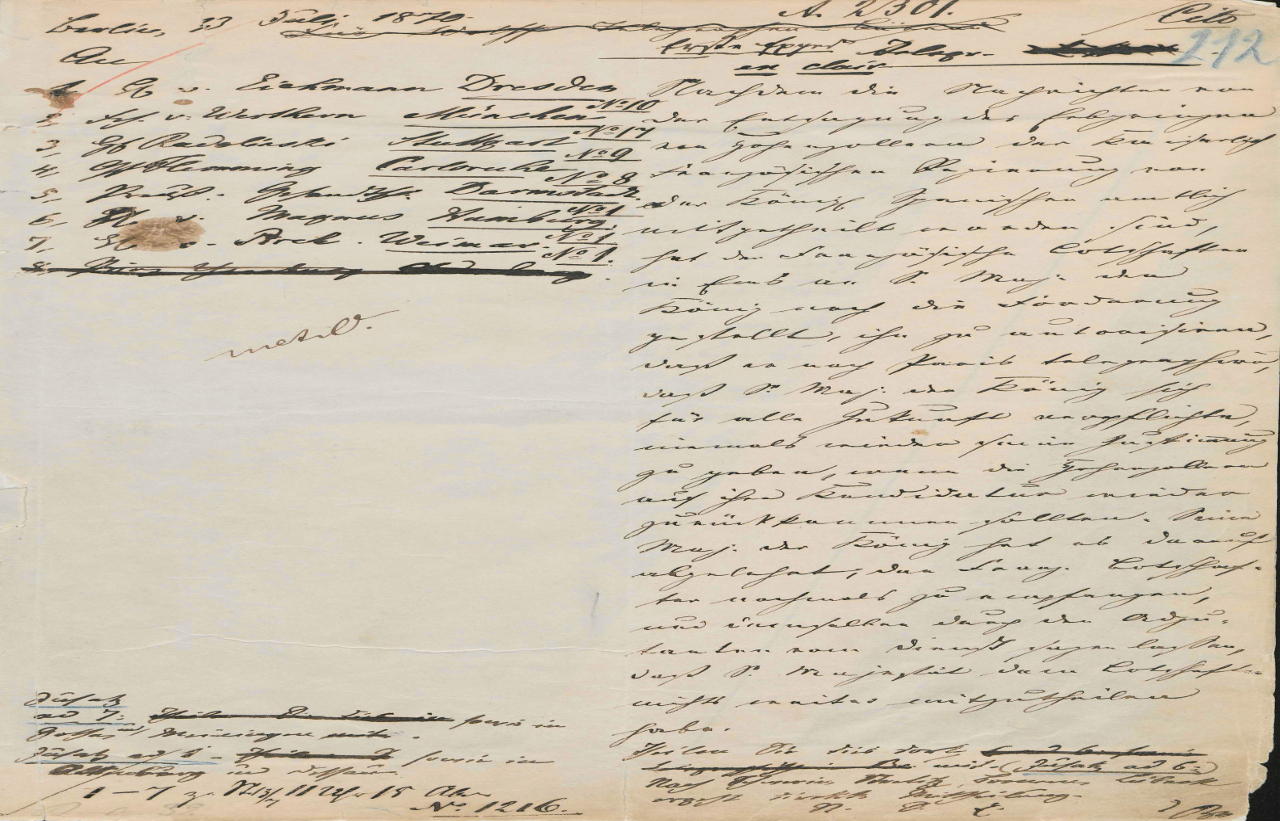 Berlin, 13 Juli 1870.
A. 2301.
Cito
212
Erste Exped. Telegr.
en clair
An
1, v. Eichmann Dresden No 10
2, Frh. v. Werthern München No 17
3, Gf Radolinski Stuttgart No 9
4, Gf Flemming Carlsruhe No 8
5, Preuß. Gesandtsch. Darmstadt No 1
6, v. Magnus Hamb
7, v. Pirch. Weimar. No 1.
Nachdem die Nachrichten von
der Entsagung des Erbprinzen
von Hohenzollern der Kaiserlich
französischen Regierung von
der Königl. Spanischen amtlich
mitgetheilt worden sind,
hat der Französische Botschafter
in Ems an S. Maj. den
König noch die Forderung
gestellt, ihn zu autorisiren,
daß er nach Paris telegraphire,
daß S. Maj. der König sich
für alle Zukunft verpflichte,
niemals wieder seine Zustimmung
zu geben, wenn die Hohenzollern
auf ihre Kandidatur wieder
zurückkommen sollten. Seine
Maj. der König hat es darauf
abgelehnt, den Franz. Botschaf-
ter nochmals zu empfangen,
und demselben durch den Adju-
tanten vom Dienst sagen lassen,
daß S. Majestät dem Botschafter
nichts weiter mitzutheilen
habe.
Theilen Sie dies dort mit. (Zusatz ad 6:
Zusatz
ad 7: sowie in
Gotha, Meiningen mit.
Zusatz ad 1. sowie in
Altenburg und Dessau.
1-7 z. St. 11 Uhr 15
No 1216.